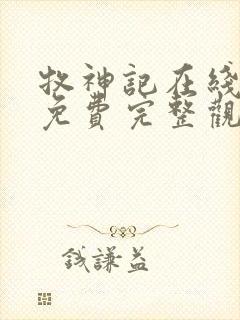 牧神記在綫
免費完整觀
錢謙益